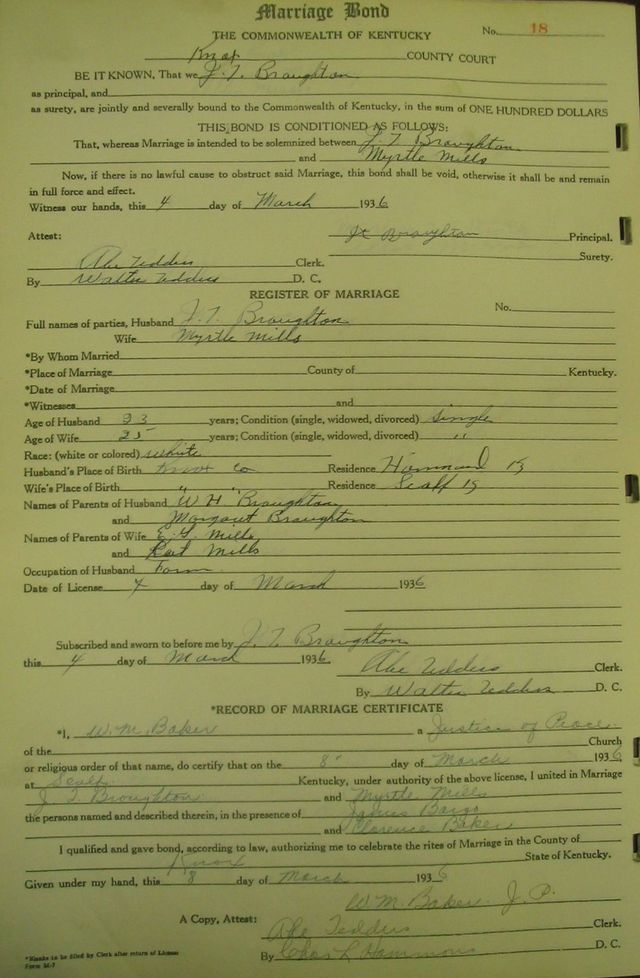 Marriage Bond
THE COMMONWEALTH OF KENTUCKY No. 18
Knox COUNTY COURT
BE IT KNOWN, That we J. T. Broughton
as principal, and
as surety, are jointly and severally bound to the Commonwealth of Kentucky, in the sum of ONE HUNDRED DOLLARS
THIS BOND IS CONDITIONED AS FOLLOWS:
That, whereas Marriage is intended to be solemnized between J. T. Broughton
and Myrtle Mills
Now, if there is no lawful cause to obstruct said Marriage, this bond shall be void, otherwise it shall be and remain
in full force and effect.
Witness our hands, this 4 day of March 1936
Attest: J T Broughton Principal.
Surety.
Abe Tedders Clerk.
By Walter Tedders D. C.
REGISTER OF MARRIAGE
No.
Full names of parties, Husband J. T. Broughton
Wife Myrtle Mills
*By Whom Married
*Place of Marriage County of Kentucky.
*Date of Marriage
*Witnesses and
Age of Husband 23 years; Condition (single, widowed, divorced) Single
Age of Wife 25 years; Condition (single, widowed, divorced) "
Race: (white or colored) white
Husband's Place of Birth Knox Co Residence Hammond Ky
Wife's Place of Birth " " Residence Scalf Ky
Names of Parents of Husband W H Broughton
and Margaret Broughton
Names of Parents of Wife Mills
and Mills
Occupation of Husband Farm
Date of License 4 day of March 1936
Subscribed and sworn to before me by J. T. Broughton
this 4 day of March 1936 Abe Tedders Clerk.
By Walter Tedders D. C.
*RECORD OF MARRIAGE CERTIFICATE
*I, W. M. Baker a Justice of Peace
of the Church
or religious order of that name, do certify that on the 8 day of March 1936
at Scalf Kentucky, under authority of the above license, I united in Marriage
J T Broughton and Myrtle Mills
the persons named and described therein, in the presence of James Bargo
and Clarence Baker
I qualified and gave bond, according to law, authorizing me to celebrate the rites of Marriage in the County of
Knox State of Kentucky.
Given under my hand, this 8 day of March 1936
W. M. Baker J. P.
A Copy, Attest: Abe Tedders Clerk.
By Chas L Hammons D. C.
*Blanks to be filled by Clerk after return of License
Form M-7